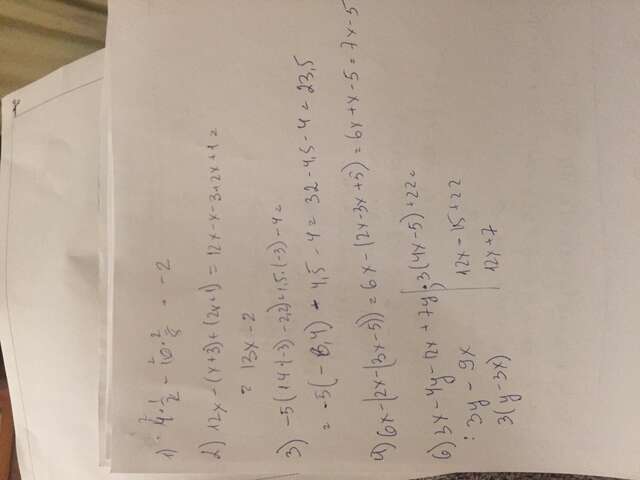 1) 4·1/2 - 10·2/5 = -2
2) 12x-(x+3)+(2x+1) = 12x-x-3+2x+1 =
= 13x-2
3) -5(+4·(-3)-2,2)+1,5·(-3)-4 =
= -5(-6,4) - 4,5 - 4 = 32-4,5-4 = 23,5
4) 6x-(2x-(3x-5)) = 6x-(2x-3x+5) = 6x+x-5 = 7x-5
6) 3x-4y-12x+7y
3(4x-5)+22=
: 3y-9x
12x-15+22
3(y-3x)
12x+7